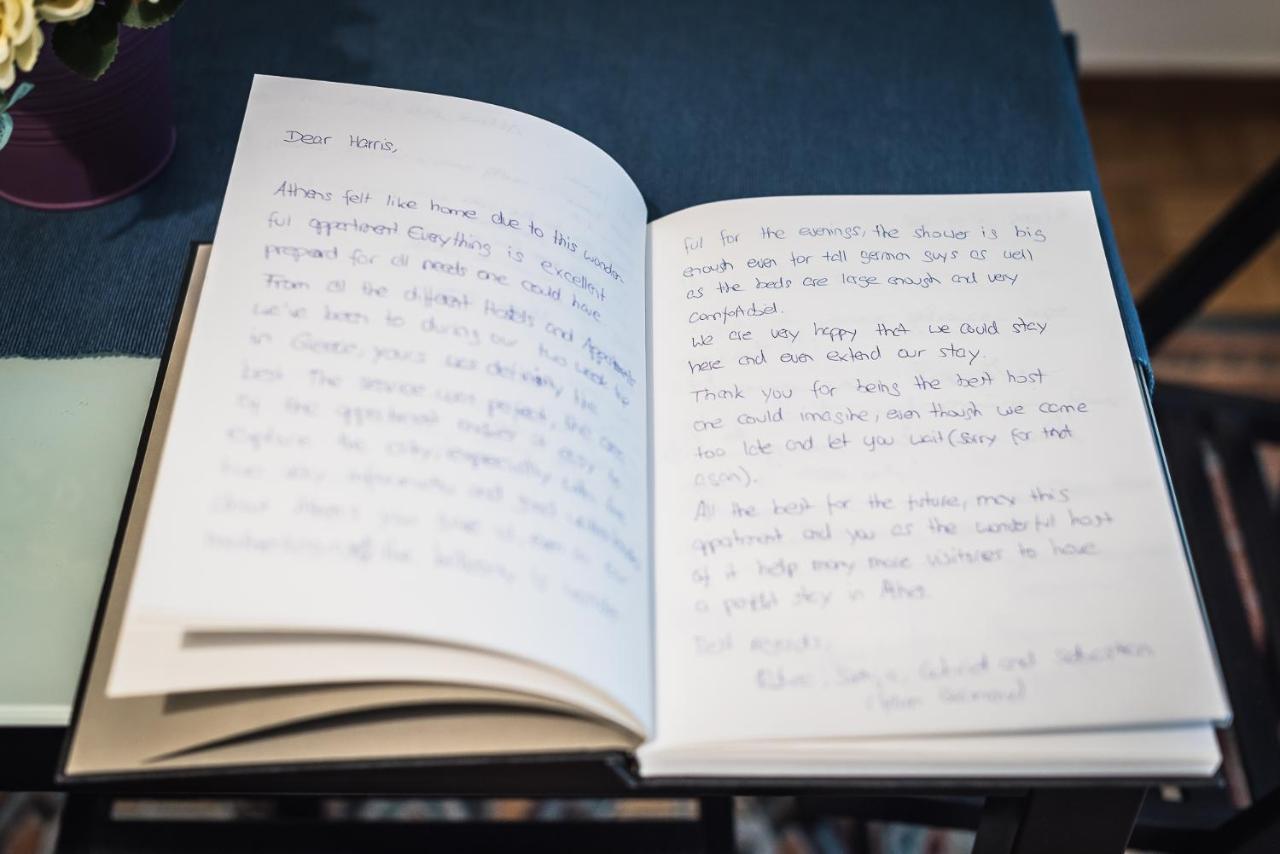 Dear Harris,
Athens felt like home due to this wonder
ful appartment Everything is excellent
prepared for all needs one could have
From all the different Hotels and Appartments
we've been to during our two week trip
in Greece, yours was definitely the
best. The service was perfect, the
of the appartment makes it easy to
explore the city, especially with the
and good
about Athens you gave us, even
ful for the evenings, the shower is big
enough even for tall german guys as well
as the beds are large enough and very
comfortabel.
We are very happy that we could stay
here and even extend our stay.
Thank you for being the best host
one could imagine, even though we came
too late and let you wait (sorry for that
again).
All the best for the future, may this
appartment and you as the wonderful host
of it help many more visitores to have
a perfect stay in Athens.
Best regards,
Gabriel and Sebastian